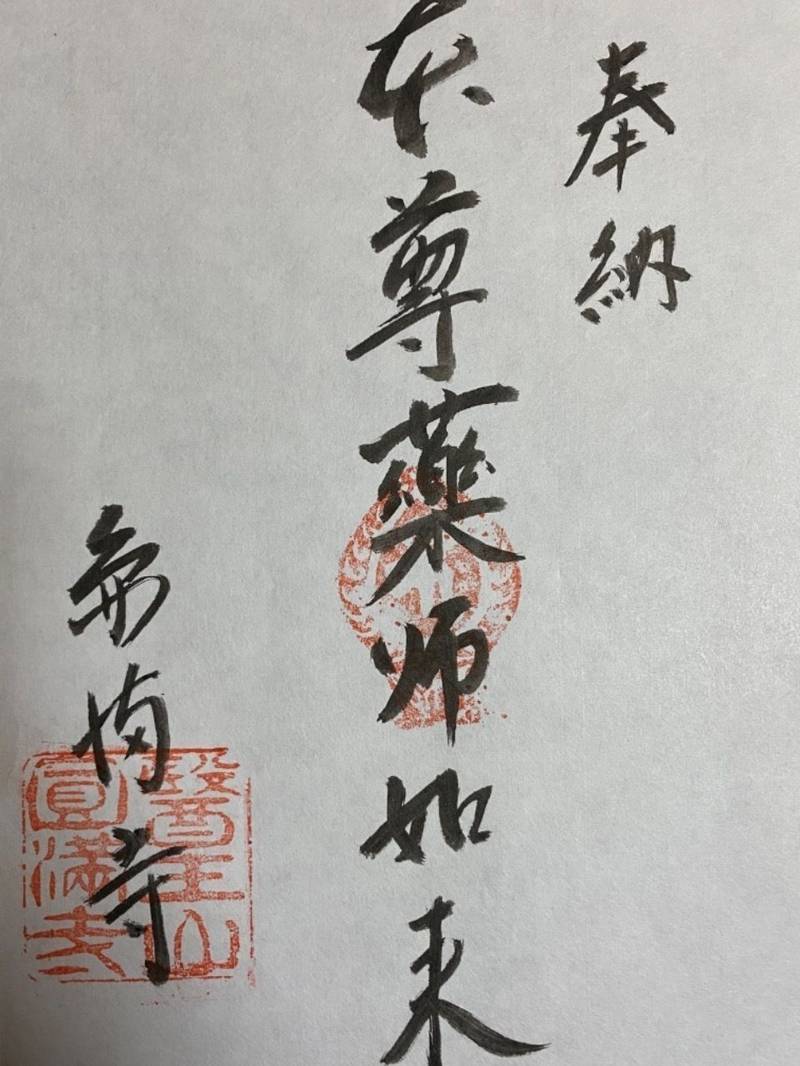 奉納
本尊藥師如来
寺
醫王山
圓満寺